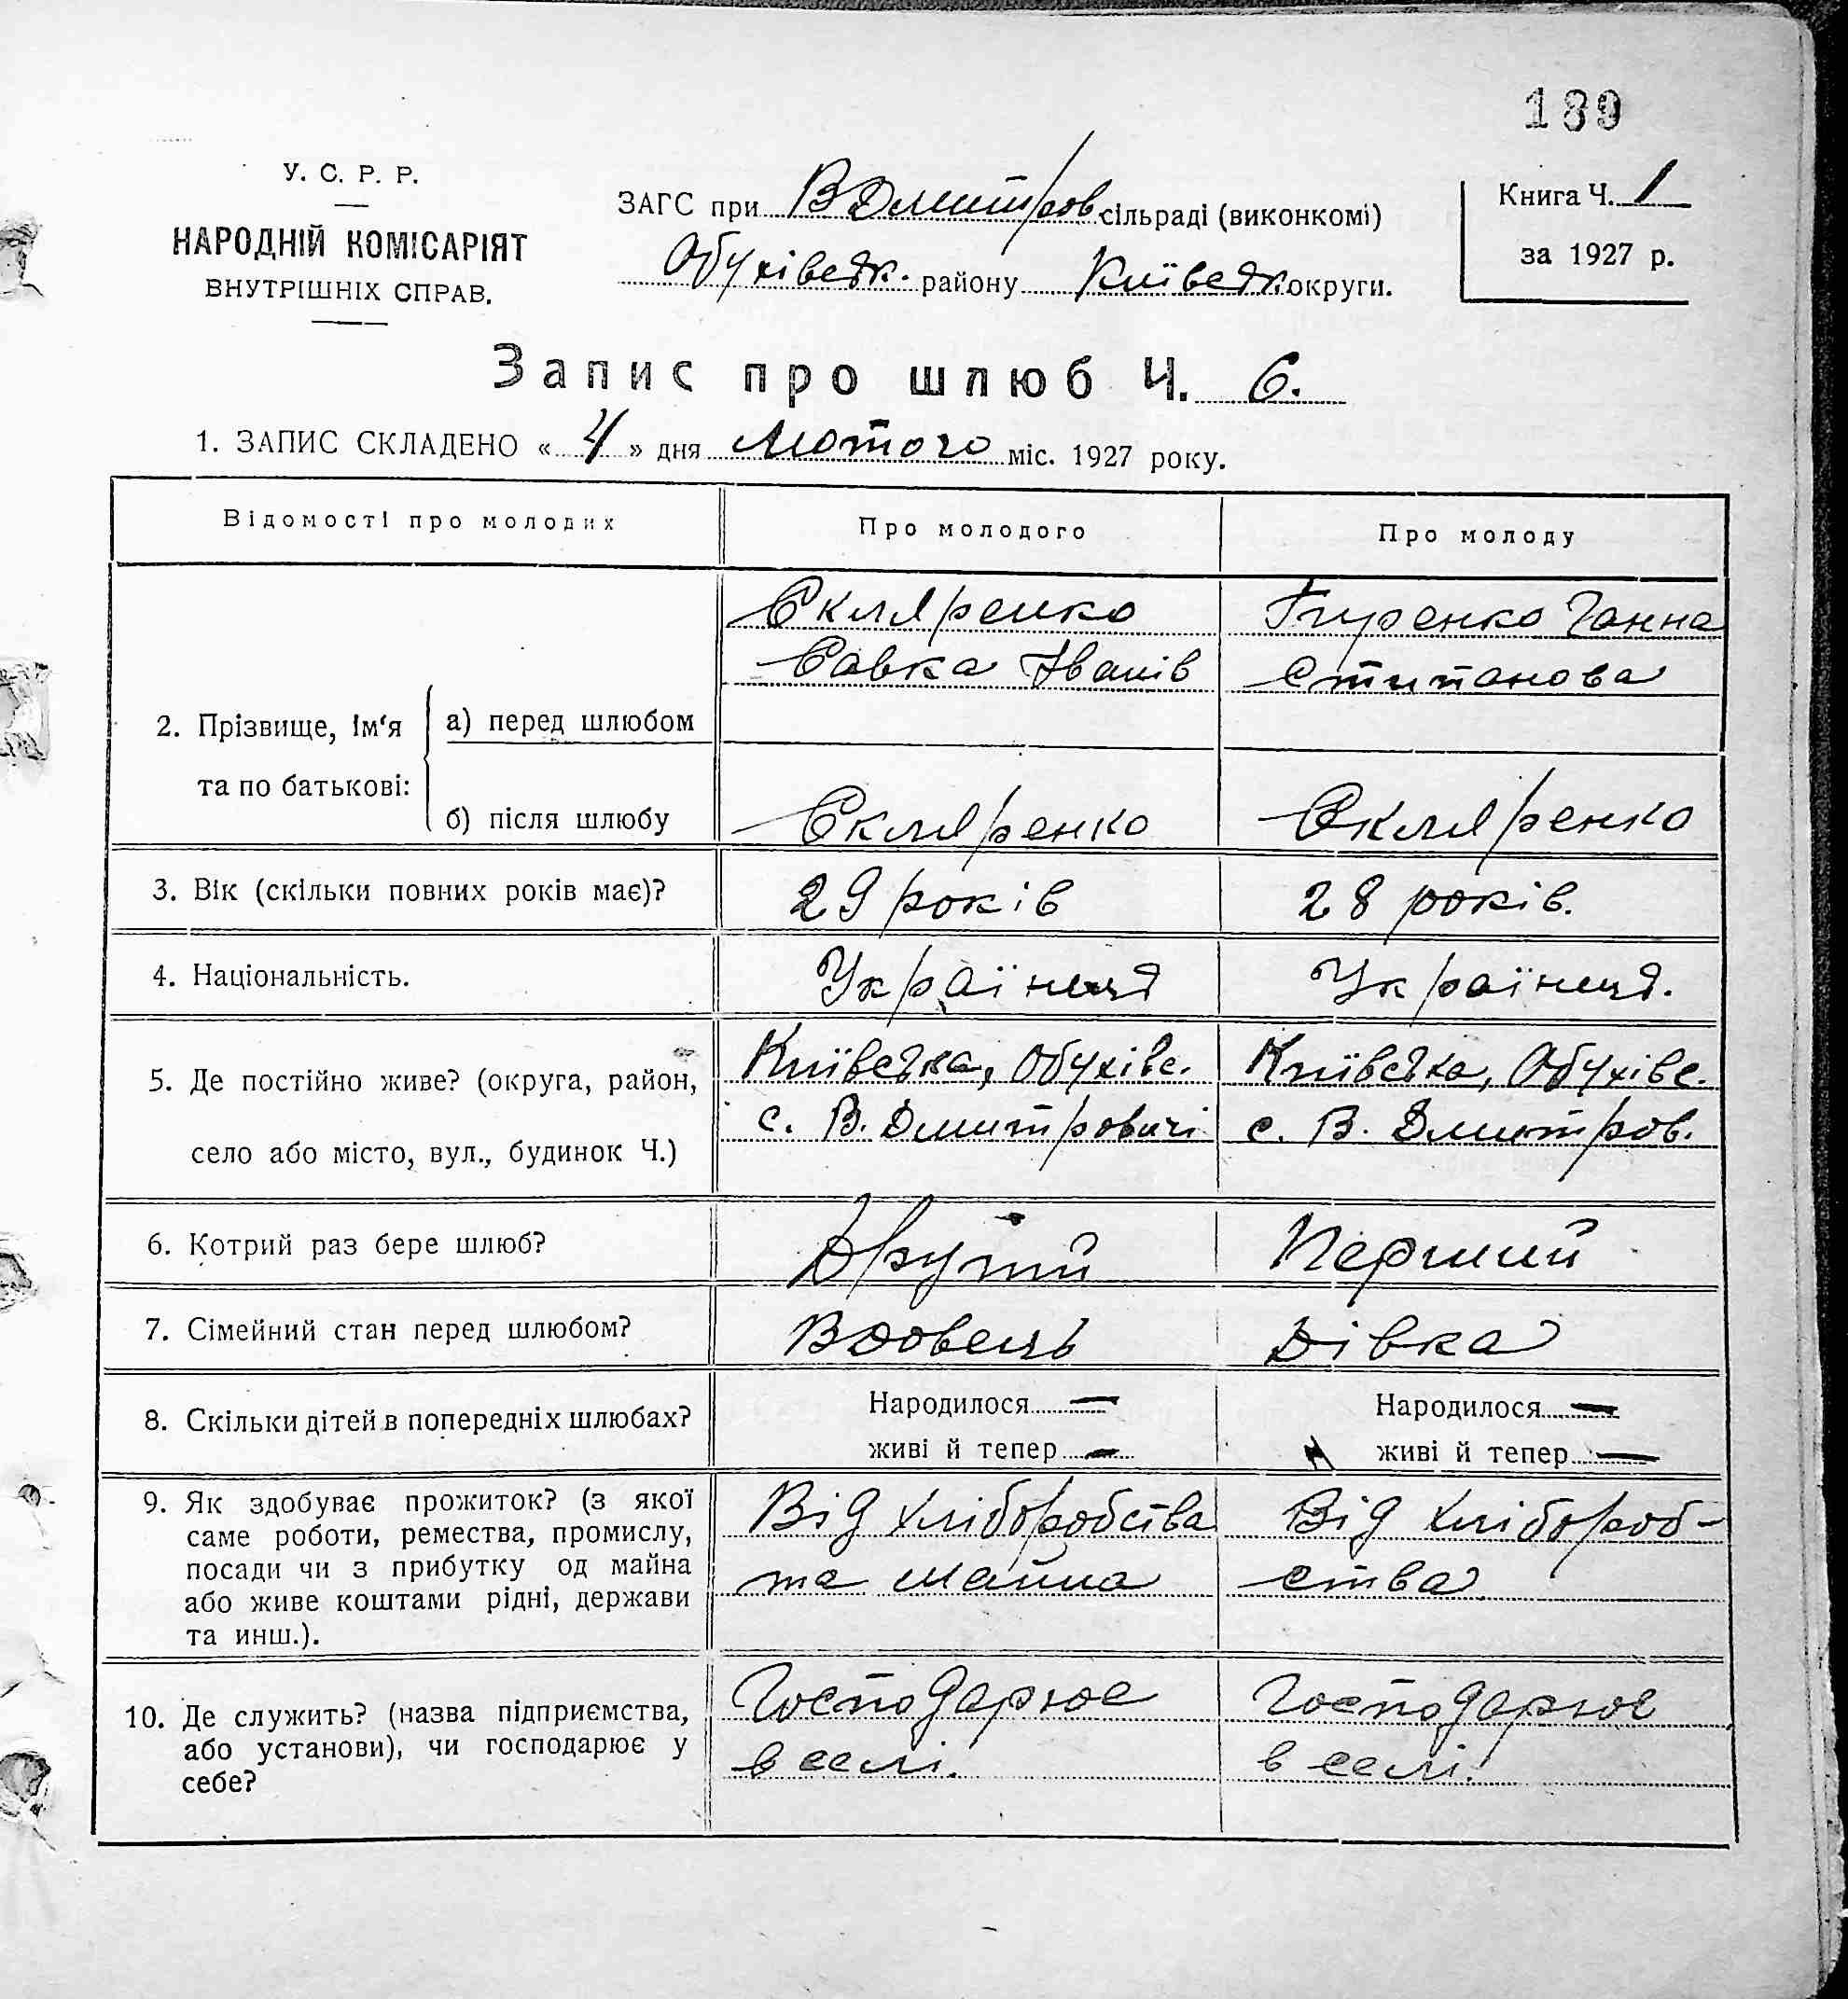 189
У. С. Р. Р.
НАРОДНІЙ КОМІСАРІЯТ
ВНУТРІШНІХ СПРАВ.
ЗАГС при В Дмитров сільраді (виконкомі)
Обухівськ. району Київськ округи.
Книга Ч. 1
за 1927 р.
Запис про шлюб Ч. 6.
1. ЗАПИС СКЛАДЕНО « 4 » дня Лютого міс. 1927 року.
Відомості про молодих
Про молодого
Про молоду
2. Прізвище, ім‘я
та по батькові:
а) перед шлюбом
Скляренко
Савка Іванів
Ганна
Степанова
б) після шлюбу
Скляренко
Скляренко
3. Вік (скільки повних років має)?
29 років
28 років.
4. Національність.
Українця
Українця.
5. Де постійно живе? (округа, район,
село або місто, вул., будинок Ч.)
Київська, Обухівс.
с. В. Дмитровичі
Київська, Обухівс.
с. В. Дмитров.
6. Котрий раз бере шлюб?
Другий
Перший
7. Сімейний стан перед шлюбом?
Вдовець
Дівка
8. Скільки дітей в попередніх шлюбах?
Народилося —
живі й тепер —
Народилося —
живі й тепер —
9. Як здобуває прожиток? (з якої
саме роботи, ремества, промислу,
посади чи з прибутку од майна
або живе коштами рідні, держави
та инш.).
Від хліборобства
та майна
Від хлібороб-
ства
10. Де служить? (назва підприємства,
або установи), чи господарює у
себе?
Господарює
в селі.
Господарює
в селі.